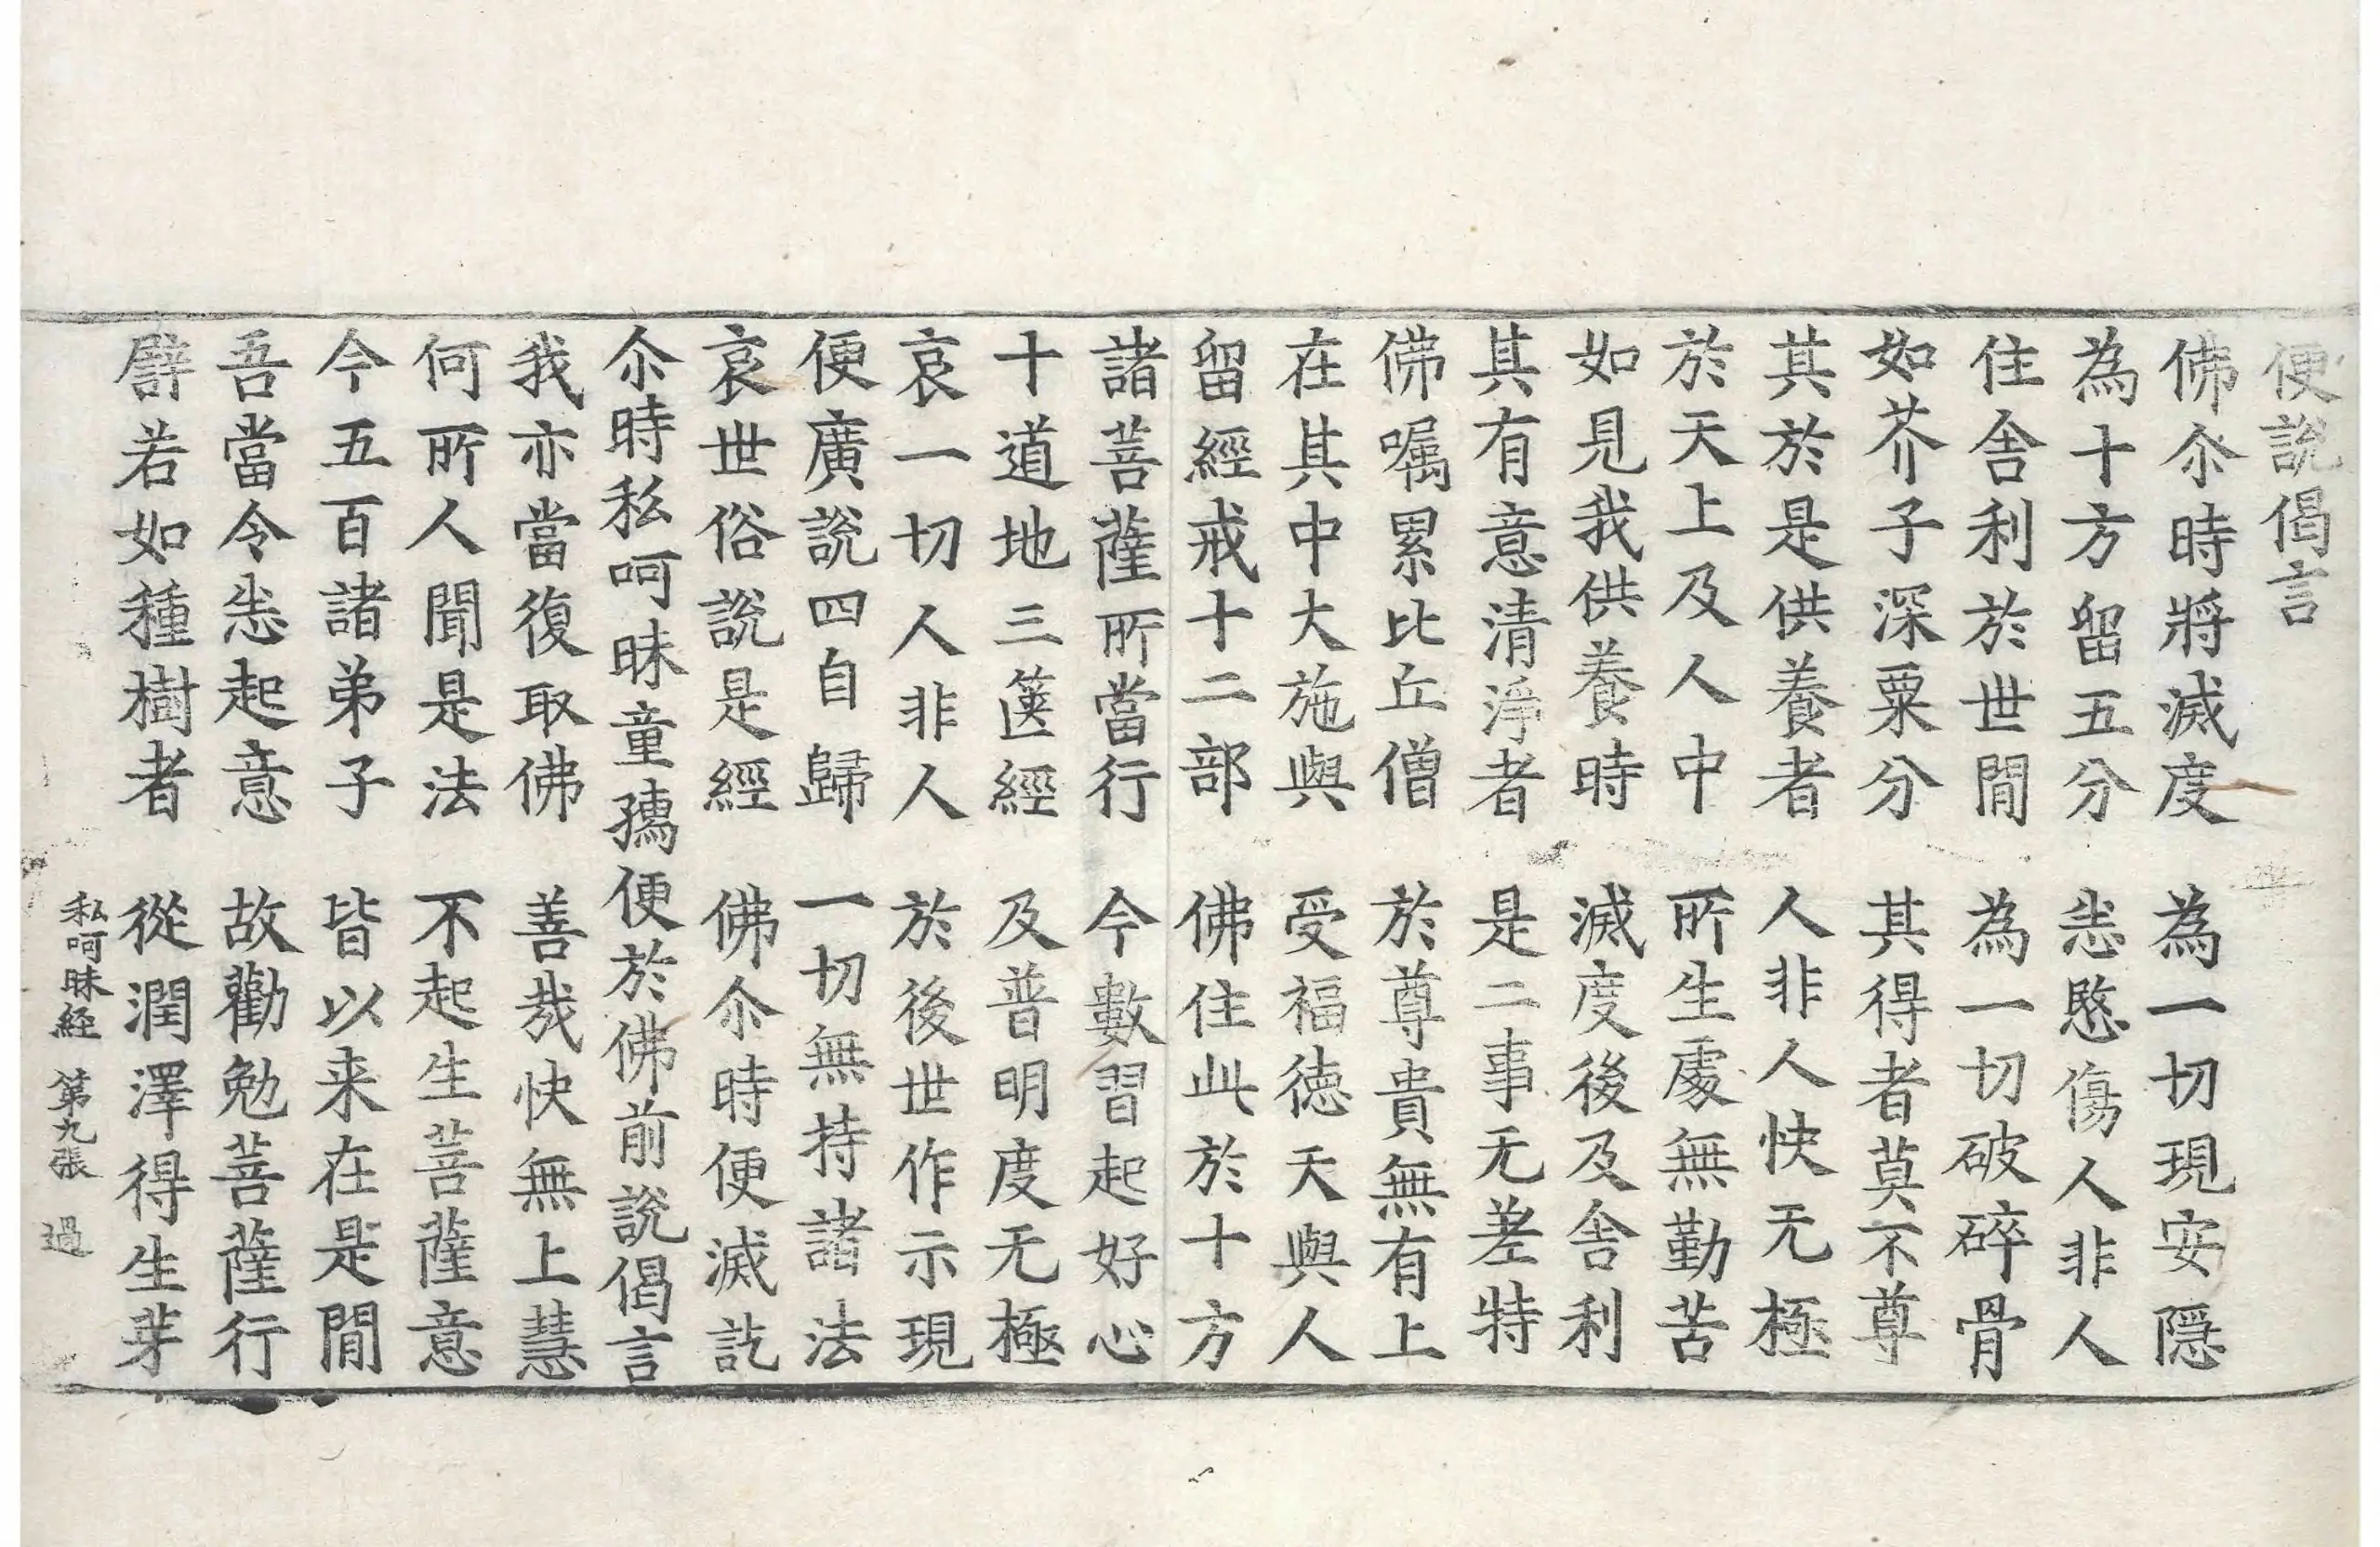 便說偈言
佛尒時將滅度　為一切現安隱
為十方留五分　恙愍傷人非人
住舍利於世間　為一切破碎骨
如芥子深粟分　其得者莫不尊
其於是供養者　人非人快无極
於天上及人中　所生處無勤苦
如見我供養時　滅度後及舍利
其有意清淨者　是二事无差特
佛囑累比丘僧　於尊貴無有上
在其中大施與　受福德天與人
留經戒十二部　佛住此於十方
諸菩薩所當行　今數習起好心
十道地三篋經　及普明度无極
哀一切人非人　於後世作示現
便廣說四自歸　一切無持諸法
哀世俗說是經　佛尒時便滅訖
尒時私呵昧童孺便於佛前說偈言
我亦當復取佛　善哉快無上慧
何所人聞是法　不起生菩薩意
今五百諸弟子　皆以来在是間
吾當令恙起意　故勸勉菩薩行
譬若如種樹者　從潤澤得生芽
私呵昧経　第九張　過